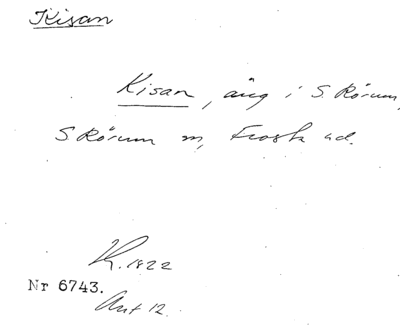 Kisan
Kisan, äng i S. Rörum,
S. Rörum sn, Frosta hd.
K. 1822
Nr 6743.
Akt 12.